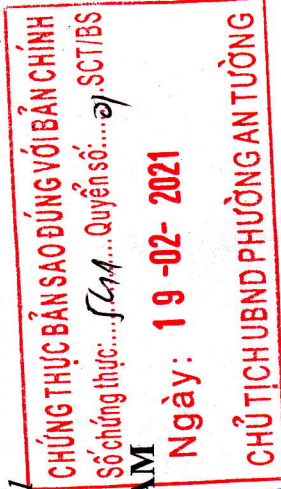 CHỨNG THỰC BẢN SAO ĐÚNG VỚI BẢN CHÍNH
Số chứng thực:.... Quyển số:....01.SCT/BS
AM
Ngày: 19 -02- 2021
CHỦ TỊCH UBND PHƯỜNG AN TƯỜNG